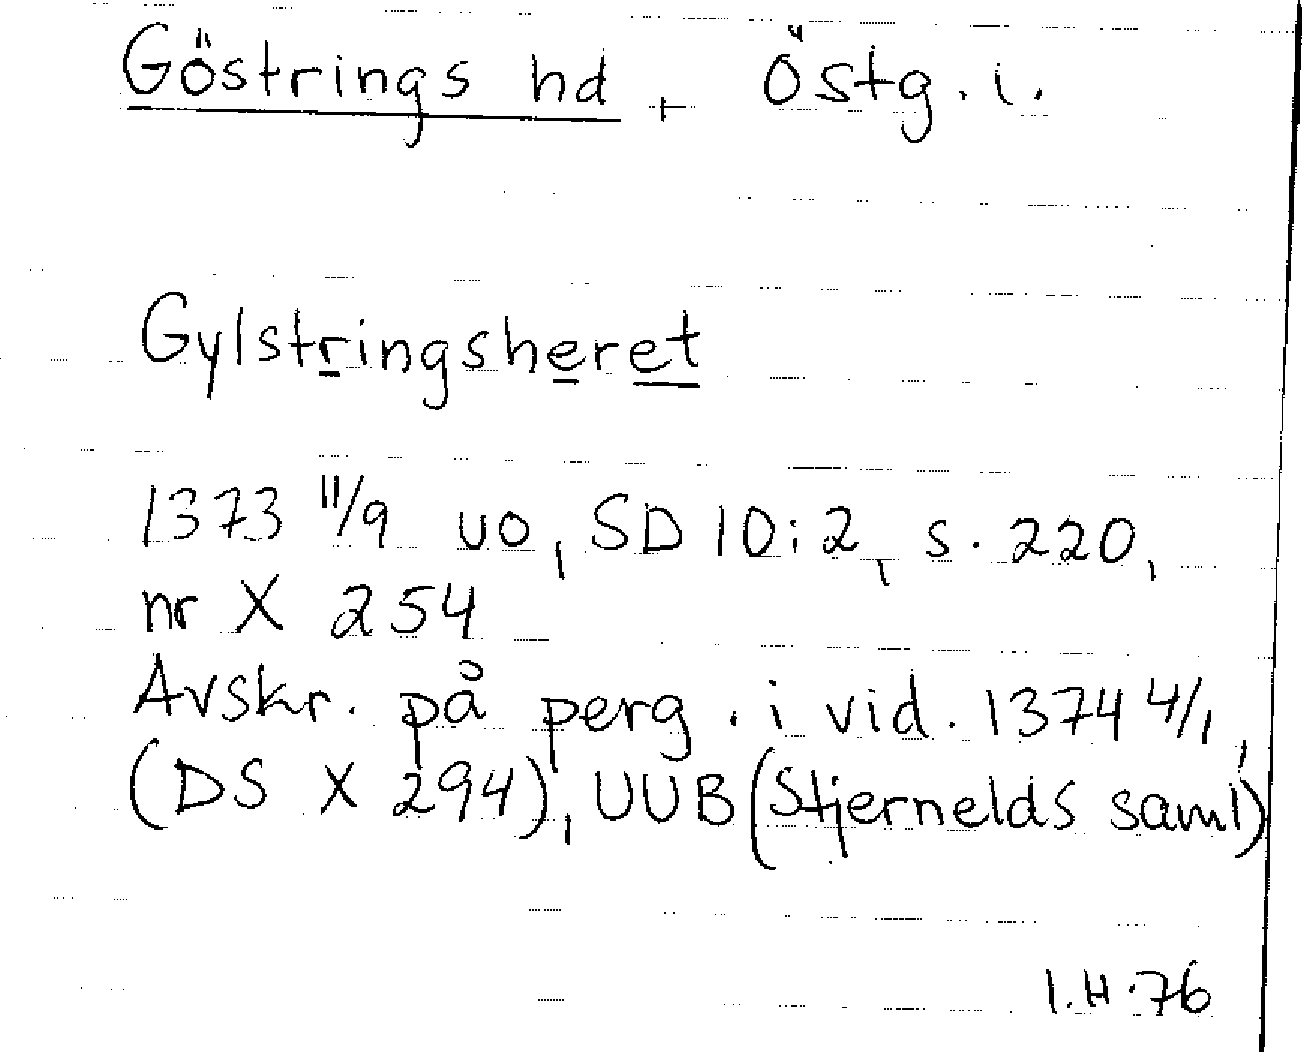 Göstrings hd + Östg. i.
Gylstringsheret
1373 11/9 uo, SD 10:2, s. 220,
nr X 254
Avskr. på perg. i vid. 1374 4/1,
(DS X 294), UUB (Stjernelds saml)
I.H. 76